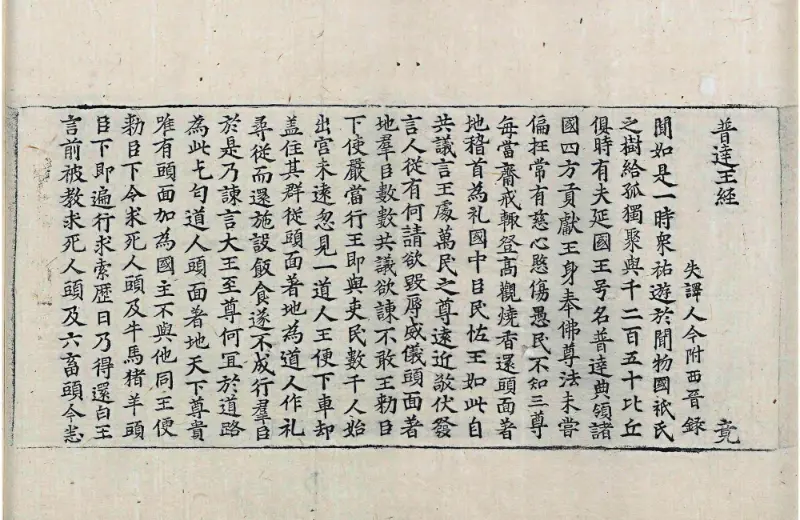 普達王経 竟
失譯人今附西晉錄
聞如是一時衆祐遊於聞物國祇氏
之樹給孤獨聚與千二百五十比丘
俱時有夫延國王号名普達典領諸
國四方貢獻王身奉佛尊法未嘗
偏枉常有慈心愍傷愚民不知三尊
每當齋戒輙登高觀燒香還頭面著
地稽首為礼國中臣民怪王如此自
共議言王處萬民之尊遠近敬伏發
言人從有何請欲毀辱威儀頭面著
地羣臣數數共議欲諫不敢王勑臣
下使嚴當行王即與吏民數千人始
出宮未遠忽見一道人王便下車却
盖住其群從頭面著地為道人作礼
尋從而還施設飯食遂不成行羣臣
於是乃諫言大王至尊何宜於道路
為此乞匃道人頭面著地天下尊貴
唯有頭面加為國主不與他同王便
勑臣下令求死人頭及牛馬猪羊頭
臣下即遍行求索歷日乃得還白王
言前被教求死人頭及六畜頭今悉